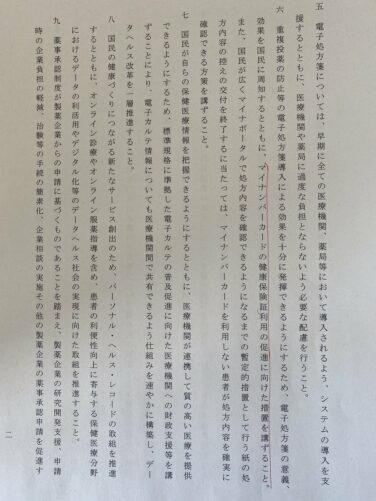 五　電子処方箋については、早期に全ての医療機関、薬局等において導入されるよう、システムの導入を支
援するとともに、医療機関や薬局に過度な負担とならないよう必要な配慮を行うこと。
六　重複投薬の防止等の電子処方箋導入による効果を十分に発揮できるようにするため、電子処方箋の意義、
効果を国民に周知するとともに、マイナンバーカードの健康保険証利用の促進に向けた措置を講ずること。
また、国民が広くマイナポータルで処方内容を確認できるようになるまでの暫定的措置として行う紙の処
方内容の控えの交付を終了するに当たっては、マイナンバーカードを利用しない患者が処方内容を確実に
確認できる方策を講ずること。
七　国民が自らの保健医療情報を把握できるようにするとともに、医療機関が連携して質の高い医療を提供
できるようにするため、標準規格に準拠した電子カルテの普及促進に向けた医療機関への財政支援等を講
ずることにより、電子カルテ情報についても医療機関間で共有できるよう仕組みを速やかに構築し、デー
タヘルス改革を一層推進すること。
八　国民の健康づくりにつながる新たなサービス創出のため、パーソナル・ヘルス・レコードの取組を推進
するとともに、オンライン診療やオンライン服薬指導を含め、患者の利便性向上に寄与する保健医療分野
におけるデータの利活用やデジタル化等のデータヘルス社会の実現に向けた取組を推進すること。
九　薬事承認制度が製薬企業からの申請に基づくものであることを踏まえ、製薬企業の研究開発支援、申請
時の企業負担の軽減、治験等の手続の簡素化、企業相談の実施その他の製薬企業の薬事承認申請を促進す
二